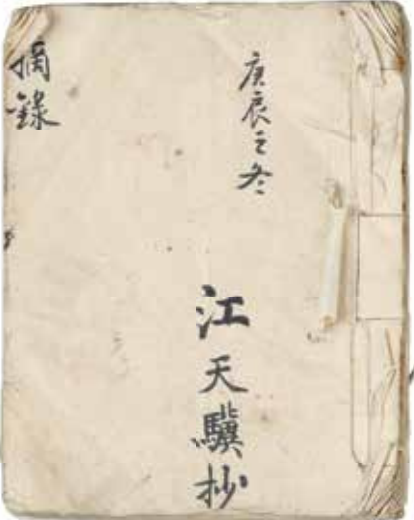 庚辰之冬
江天驥抄
摘錄